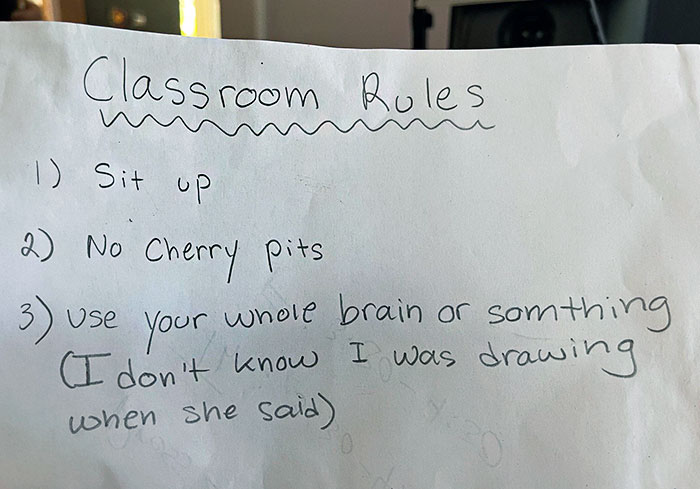 Classroom Rules
1) Sit up
2) No Cherry pits
3) Use your whole brain or somthing
(I don't know I was drawing
when she said)